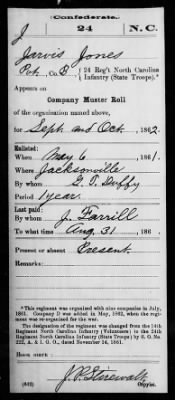 Confederate.
J | 24 | N.C.
Jarvis Jones
Pvt, Co. B, 24 Reg't North Carolina
Infantry (State Troops).*
Appears on
Company Muster Roll
of the organization named above,
for Sept. and Oct., 1862.
Enlisted:
When May 6, 1861.
Where Jacksonville
By whom G. T. Duffy
Period 1 year.
Last paid:
By whom J. Farrill
To what time Aug. 31, 186
Present or absent Present.
Remarks:
*This regiment was organized with nine companies in July,
1861. Company D was added in May, 1862, when the regi-
ment was re-organized.
The designation of the regiment was changed from the 14th
Regiment North Carolina Infantry (Volunteers) to the 24th
Regiment North Carolina Infantry (State Troops) by S. O. No.
222, A. & I. G. O., dated November 14, 1861.
Book mark:
(642) J. P. Stirewalt
Copyist.